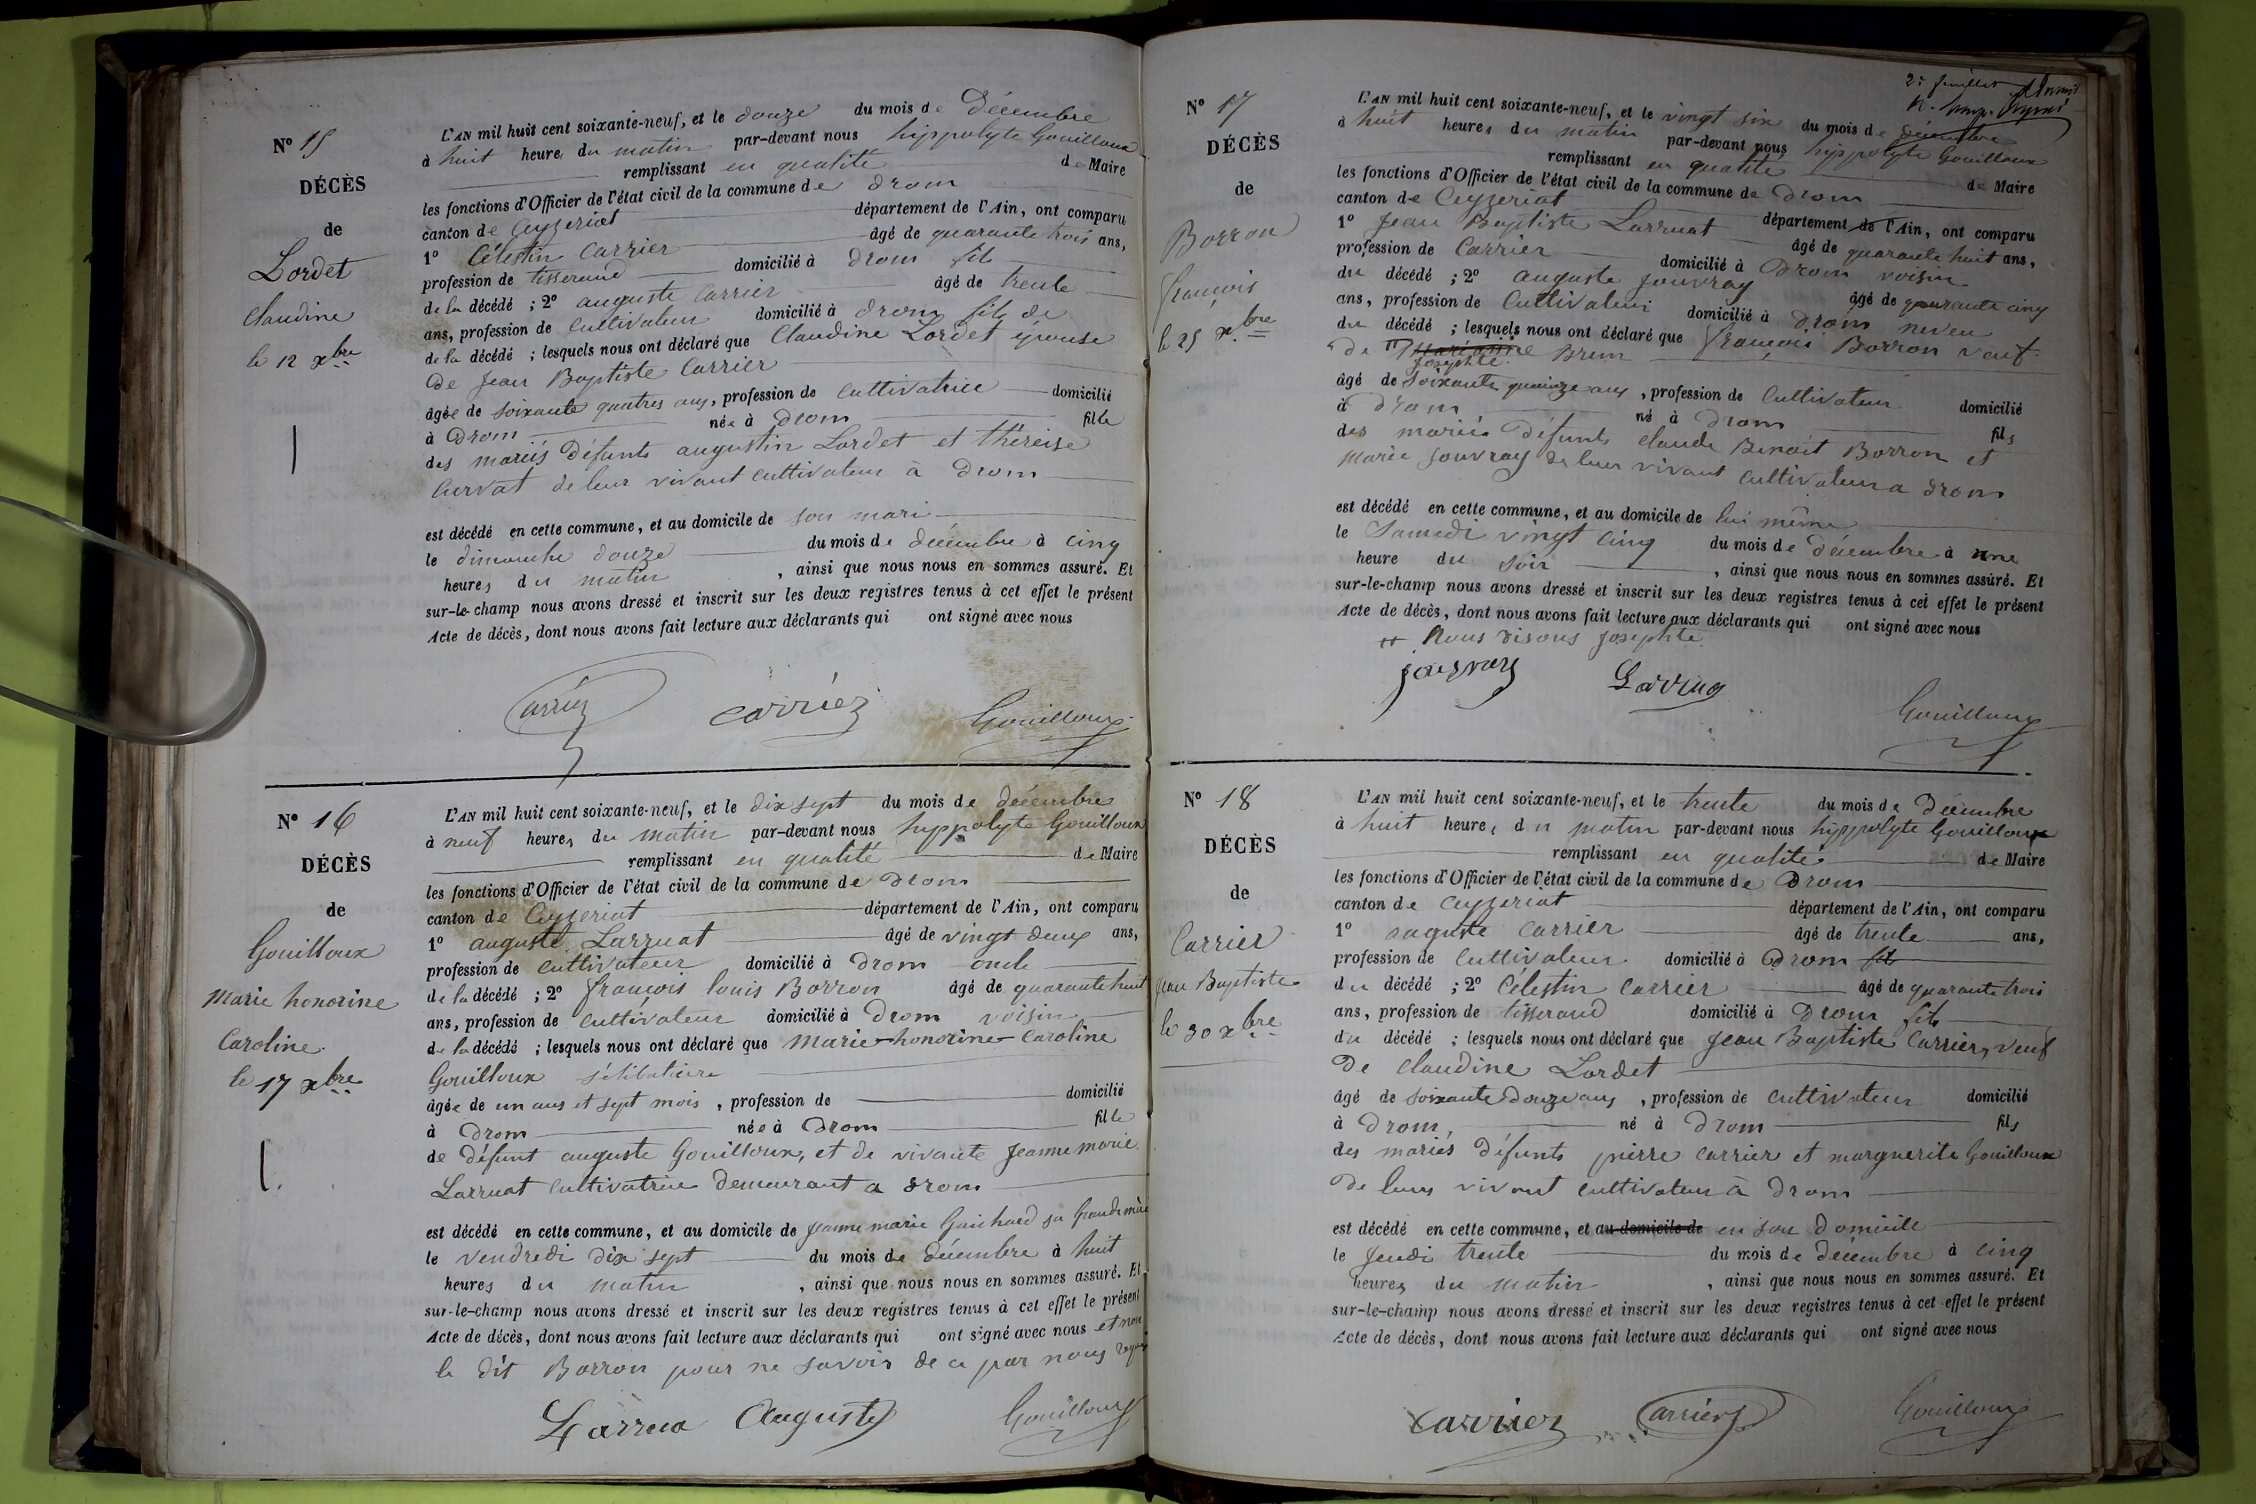 N° 15
DÉCÈS
de
Lordet
Claudine
le 12 xbre
L'AN mil huit cent soixante-neuf, et le douze du mois de Décembre
à huit heures du matin par-devant nous hyppolyte Gouilloux
remplissant en qualité de Maire
les fonctions d'Officier de l'état civil de la commune de drom
canton de Ceyzeriat département de l'Ain, ont comparu
1° Célestin Carrier âgé de quarante trois ans,
profession de tisserand domicilié à drom fils
de la décédé ; 2° auguste Carrier âgé de trente
ans, profession de Cultivateur domicilié à drom fils de
de la décédé ; lesquels nous ont déclaré que Claudine Lordet épouse
de Jean Baptiste Carrier
âgée de soixante quatres ans, profession de Cultivatrice domicilié
à Drom née à Drom fille
des mariés défunts augustin Lordet et théreise
Curvat de leur vivant cultivateur à Drom
est décédé en cette commune, et au domicile de son mari
le dimanche douze du mois de décembre à cinq
heures du matin , ainsi que nous nous en sommes assuré. Et
sur-le-champ nous avons dressé et inscrit sur les deux registres tenus à cet effet le présent
Acte de décès, dont nous avons fait lecture aux déclarants qui ont signé avec nous
Carriez carriez Gouilloux
N° 16
DÉCÈS
de
Gouilloux
Marie honorine
Caroline
le 17 xbre
L'AN mil huit cent soixante-neuf, et le dix sept du mois de décembre
à neuf heures du matin par-devant nous hyppolyte Gouilloux
remplissant en qualité de Maire
les fonctions d'Officier de l'état civil de la commune de Drom
canton de Ceyzeriat département de l'Ain, ont comparu
1° auguste Larruat âgé de vingt deux ans,
profession de cultivateur domicilié à Drom oncle
de la décédé ; 2° françois louis Borron âgé de quarante huit
ans, profession de cultivateur domicilié à Drom voisin
de la décédé ; lesquels nous ont déclaré que Marie-honorine-Caroline
Gouilloux sélibataire
âgée de un ans et sept mois , profession de domicilié
à Drom née à Drom fille
de défunt auguste Gouilloux, et de vivante Jeanne marie
Larruat Cultivatrice demeurant a drom
est décédé en cette commune, et au domicile de Jeanne marie Guichard sa Grande mère
le vendredi dix sept du mois de décembre à huit
heures du matin , ainsi que nous nous en sommes assuré. Et
sur-le-champ nous avons dressé et inscrit sur les deux registres tenus à cet effet le présent
Acte de décès, dont nous avons fait lecture aux déclarants qui ont signé avec nous et non
le dit Borron pour ne savoir de ce par nous
Larrua Auguste Gouilloux
2e feuillet
N° 17
DÉCÈS
de
Borron
françois
le 25 xbre
L'AN mil huit cent soixante-neuf, et le vingt six du mois de décembre
à huit heures du matin par-devant nous hyppolyte Gouilloux
remplissant en qualité de Maire
les fonctions d'Officier de l'état civil de la commune de Drom
canton de Ceyzeriat département de l'Ain, ont comparu
1° Jean Baptiste Larruat âgé de quarante huit ans,
profession de Carrier domicilié à Drom voisin
du décédé ; 2° auguste Jouvray âgé de quarante cinq
ans, profession de Cultivateur domicilié à Drom neveu
du décédé ; lesquels nous ont déclaré que françois Borron veuf
de Marianne Brun
Josephte
âgé de soixante quinze ans , profession de Cultivateur domicilié
à Drom né à Drom fils
des mariés défunts claude Benoit Borron et
Marie Jouvray de leur vivant Cultivateur a drom
est décédé en cette commune, et au domicile de lui même
le Samedi vingt cinq du mois de décembre à une
heure du soir , ainsi que nous nous en sommes assuré. Et
sur-le-champ nous avons dressé et inscrit sur les deux registres tenus à cet effet le présent
Acte de décès, dont nous avons fait lecture aux déclarants qui ont signé avec nous
++ Nous disons Josephte
Gouilloux
N° 18
DÉCÈS
de
Carrier
Jean Baptiste
le 30 xbre
L'AN mil huit cent soixante-neuf, et le trente du mois de Décembre
à huit heures du matin par-devant nous hyppolyte Gouilloux
remplissant en qualité de Maire
les fonctions d'Officier de l'état civil de la commune de Drom
canton de Ceyzeriat département de l'Ain, ont comparu
1° auguste Carrier âgé de trente ans,
profession de Cultivateur domicilié à Drom fil
du décédé ; 2° Célestin Carrier âgé de quarante trois
ans, profession de tisserand domicilié à Drom fils
du décédé ; lesquels nous ont déclaré que Jean Baptiste Carrier, veuf
De Claudine Lordet
âgé de soixante douze ans , profession de cultivateur domicilié
à Drom, né à Drom fils
des mariés défunts pierre Carrier et marguerite Gouilloux
De leur vivant cultivateur à Drom
est décédé en cette commune, et au domicile de en son Domicile
le Jeudi trente du mois de décembre à cinq
heures du matin , ainsi que nous nous en sommes assuré. Et
sur-le-champ nous avons dressé et inscrit sur les deux registres tenus à cet effet le présent
Acte de décès, dont nous avons fait lecture aux déclarants qui ont signé avec nous
Carriez Carriez Gouilloux